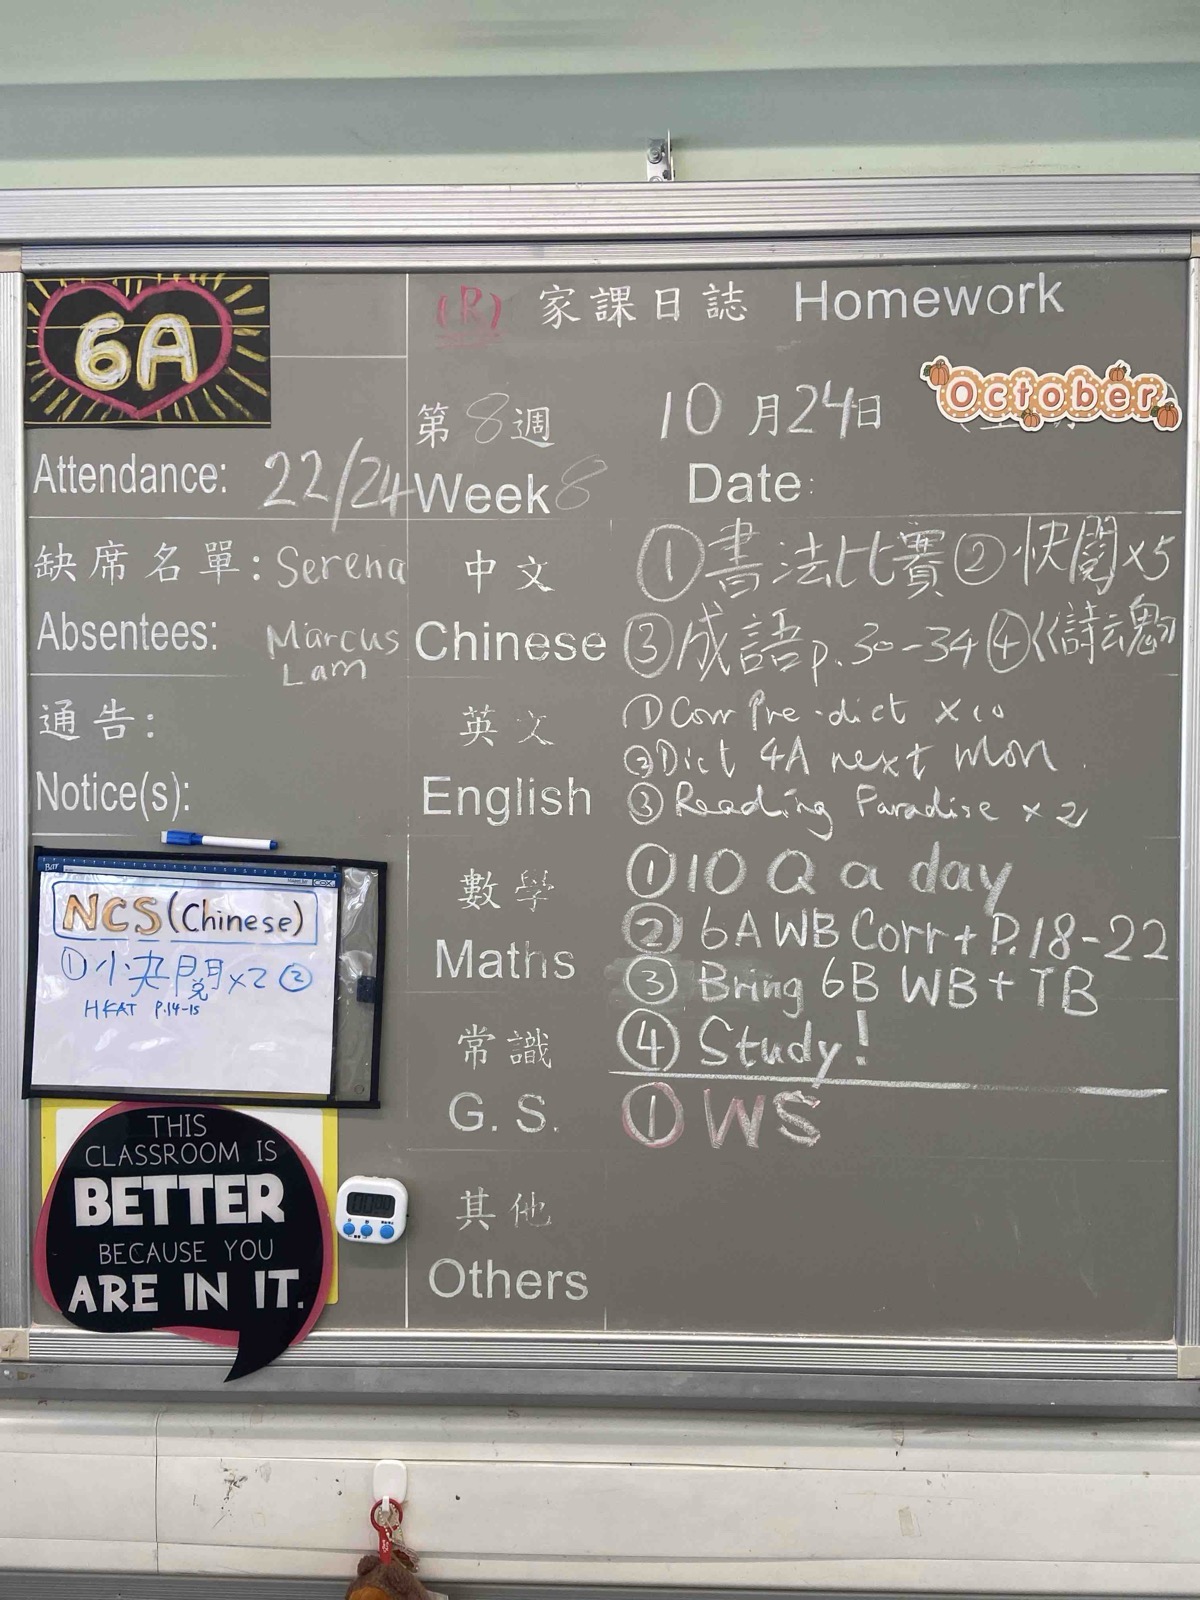 6A
(R) 家課日誌 Homework
October
第8週 10月24日
Week 8 Date:
Attendance: 22/24
缺席名單: Serena
Absentees: Marcus
Lam
通告:
Notice(s):
中文 ①書法比賽②快閱x5
Chinese ③成語p.30-34④
英文 ①Corr Pre-dict x10
②Dict 4A next Mon.
English ③Reading Paradise x2
數學 ①10 Q a day
②6A WB Corr + P.18-22
Maths ③Bring 6B WB + TB
④Study!
常識
G.S. ①WS
其他
Others
NCS (Chinese)
①快閱x2 ②
HKAT P.14-15
THIS
CLASSROOM IS
BETTER
BECAUSE YOU
ARE IN IT.